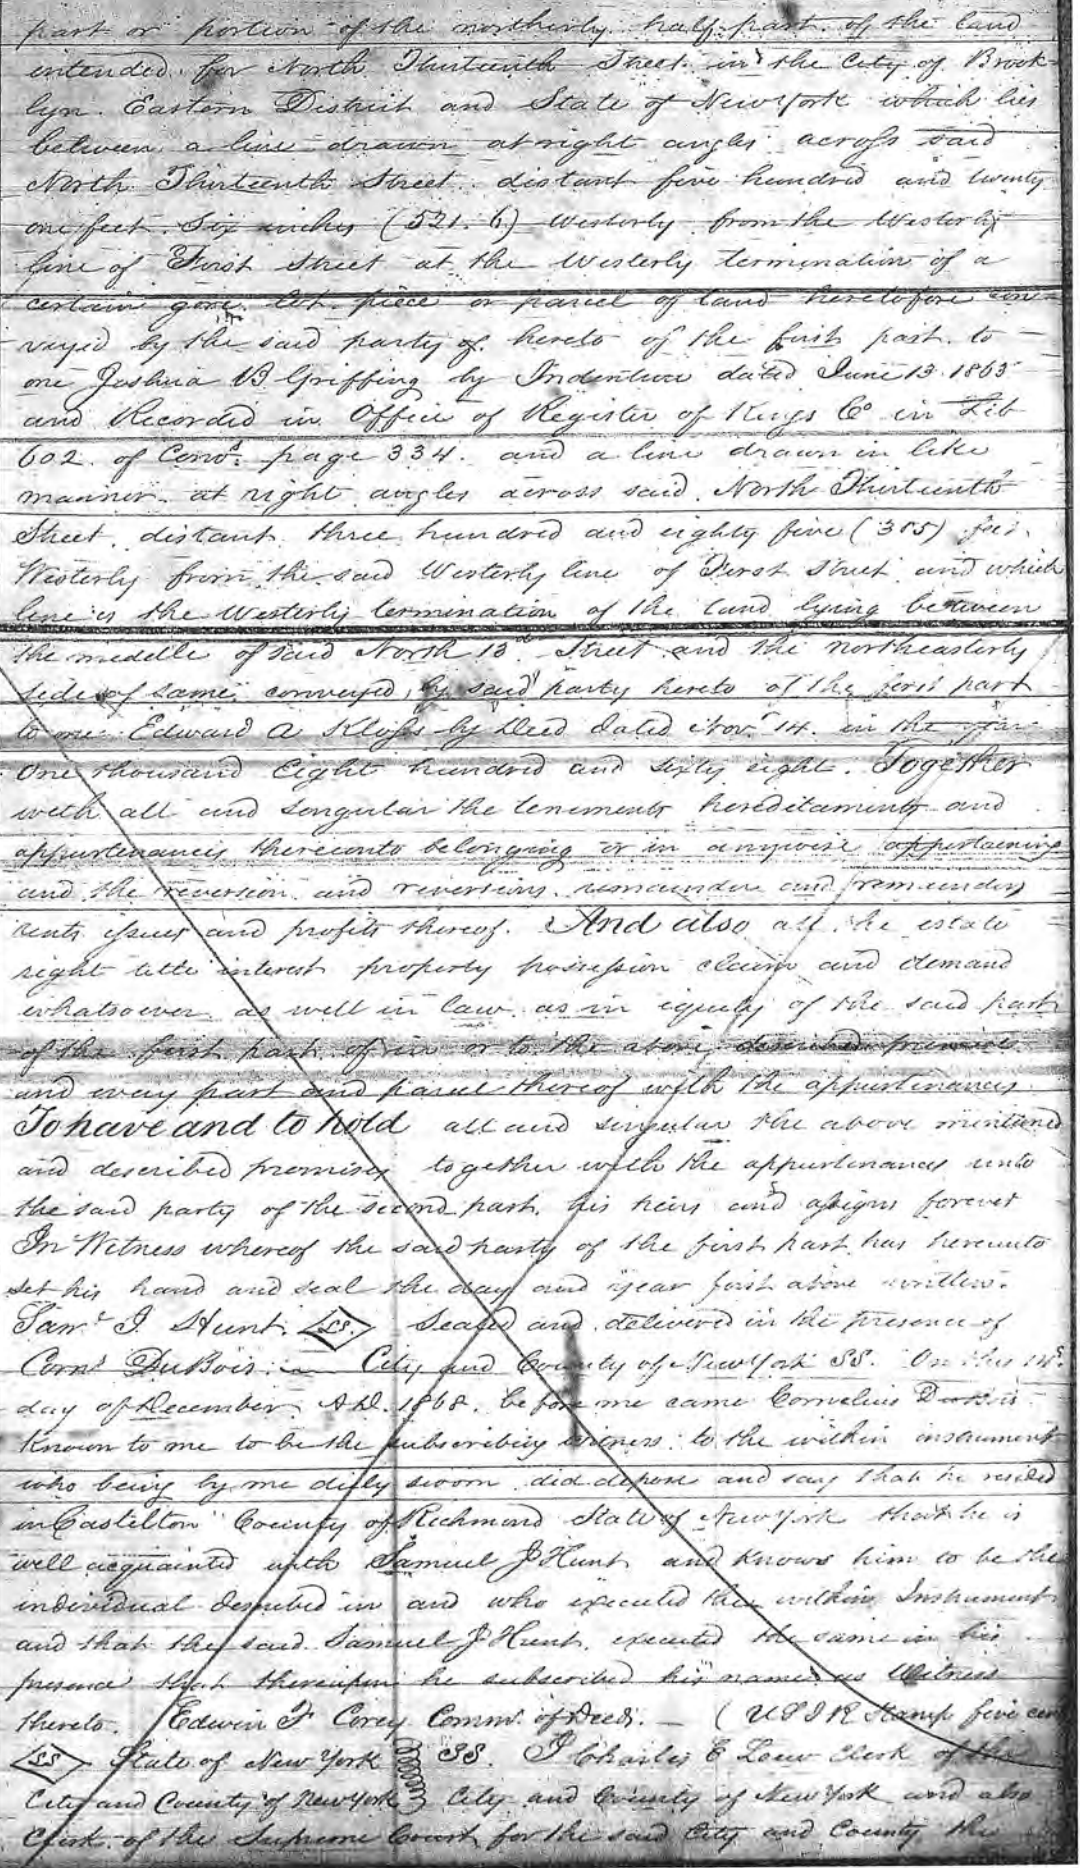 part or portion of the northerly half part of the land
intended for North Thirteenth Street in the City of Brook-
lyn Eastern District and State of New York which lies
between a line drawn at right angles across said
North Thirteenth Street distant five hundred and twenty
one feet six inches (521.6) Westerly from the Westerly
line of First Street at the Westerly termination of a
certain gore lot piece or parcel of land heretofore con-
veyed by the said party of hereto of the first part to
one Joshua B Griffing by Indenture dated June 13 1863
and Recorded in Office of Register of Kings Co in Lib
602 of Convs. page 334. and a line drawn in like
manner at right angles across said North Thirteenth
Street distant three hundred and eighty five (385) feet
Westerly from the said Westerly line of First Street and which
line is the Westerly termination of the land lying between
the middle of said North 13th Street and the northeasterly
side of same conveyed by said party hereto of the first part
to one Edward A Kloss by Deed dated Nov. 14. in the year
One thousand Eight hundred and sixty eight. Together
with all and singular the tenements hereditaments and
appurtenances thereunto belonging or in anywise appertaining
and the reversion and reversions remainder and remainders
rents issues and profits thereof. And also all the estate
right title interest property possession claim and demand
whatsoever as well in law as in equity of the said part
of the first part of in or to the above described premises
and every part and parcel thereof with the appurtenances
To have and to hold all and singular the above mentioned
and described premises together with the appurtenances unto
the said party of the second part his heirs and assigns forever
In Witness whereof the said party of the first part has hereunto
set his hand and seal the day and year first above written.
Saml J. Hunt. LS. Sealed and delivered in the presence of
Corns DuBois City and County of New York SS. On this 14th
day of December A.D. 1868. before me came Cornelius DuBois
known to me to be the subscribing witness to the within instrument
who being by me duly sworn did depose and say that he resided
in Castelton County of Richmond State of New York that he is
well acquainted with Samuel J Hunt and knows him to be the
individual described in and who executed the within Instrument
and that the said Samuel J Hunt. executed the same in his
presence that thereupon he subscribed his name as Witness
thereto. Edwin F Corey Commr. of Deeds. — (U S I R Stamp five cent
LS State of New York SS. I Charles E Loew Clerk of the
City and County of New York City and County of New York and also
Clerk of the Supreme Court for the said City and County the